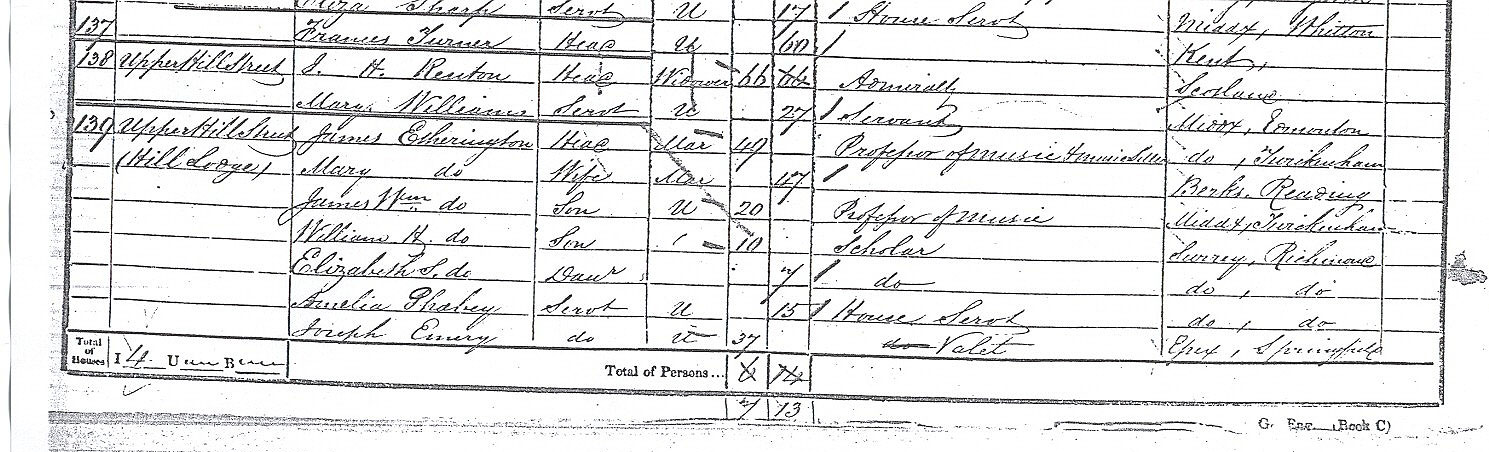 Eliza Sharp Servt U 17 House Servt Middx, Whitton
137 Frances Turner Head U 60 Kent,
138 Upper Hill Street J. H. Renton Head Widower 66 66 Admiralty Scotland
Mary Williams Servt U 27 Servant Middx, Edmonton
139 Upper Hill Street James Etherington Head Mar 49 Professor of Music & Music Seller do, Twickenham
(Hill Lodge) Mary do Wife Mar 47 Berks, Reading
James Wm do Son U 20 Professor of Music Middx, Twickenham
William H. do Son 10 Scholar Surrey, Richmond
Elizabeth S. do Daur 7 do do, do
Amelia Servt U 15 House Servt do, do
Joseph Emery do U 37 do Valet Essex, Springfield
Total of Houses I 4 U B Total of Persons... 6 14
7 13
(Book C)